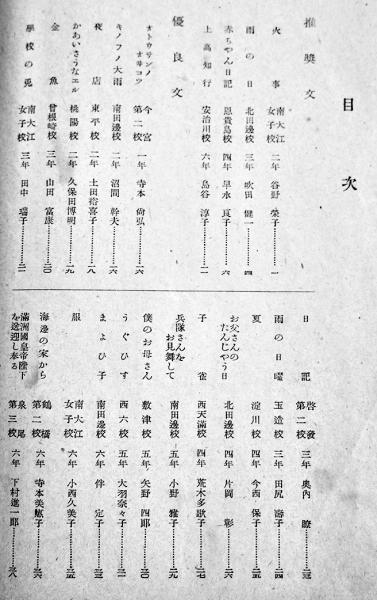 目次
推奨文
火事 南大江女子校 二年 谷野 榮子 一
雨の日 北田邊校 三年 吹田 健一 四
赤ちやん日記 恩貴島校 四年 早水 眞子 六
上高知行 安治川校 六年 島谷 淳子 一一
優良文
オトウサンノオサコウ 今宮第二校 一年 寺本 尙弘 一六
キノフノ大雨 南田邊校 二年 沼間 幹夫 一六
夜店 東平校 二年 土田裕喜子 一八
かあいさうなエル 桃陽校 二年 久保田博明 一九
金魚 曾根崎校 三年 山田 富康 二〇
學校の兎 南大江女子校 三年 田中 瑞子 二一
日記 啓發第二校 三年 奥內 瞭
雨の日曜 玉造校 三年 田尻 壽子 二四
夏 淀川校 四年 今西 保子 二五
お父さんのたんじやう日 北田邊校 四年 片岡 彰 二六
子雀 西天滿校 四年 荒木多歌子 二七
兵隊さんをお見舞して 南田邊校 五年 小野 雅子 二九
僕のお母さん 敷津校 五年 矢野 四郞 三〇
うぐひす 西六校 五年 大羽奈々子 三一
まよひ子 南田邊校 六年 伴 定子 三三
服 南大江女子校 六年 小西久美子 三五
海邊の家から 鶴橋第二校 六年 寺本美慜子 三六
滿洲國皇帝陛下を送迎し奉る 泉尾第三校 六年 下村進一郞 三八